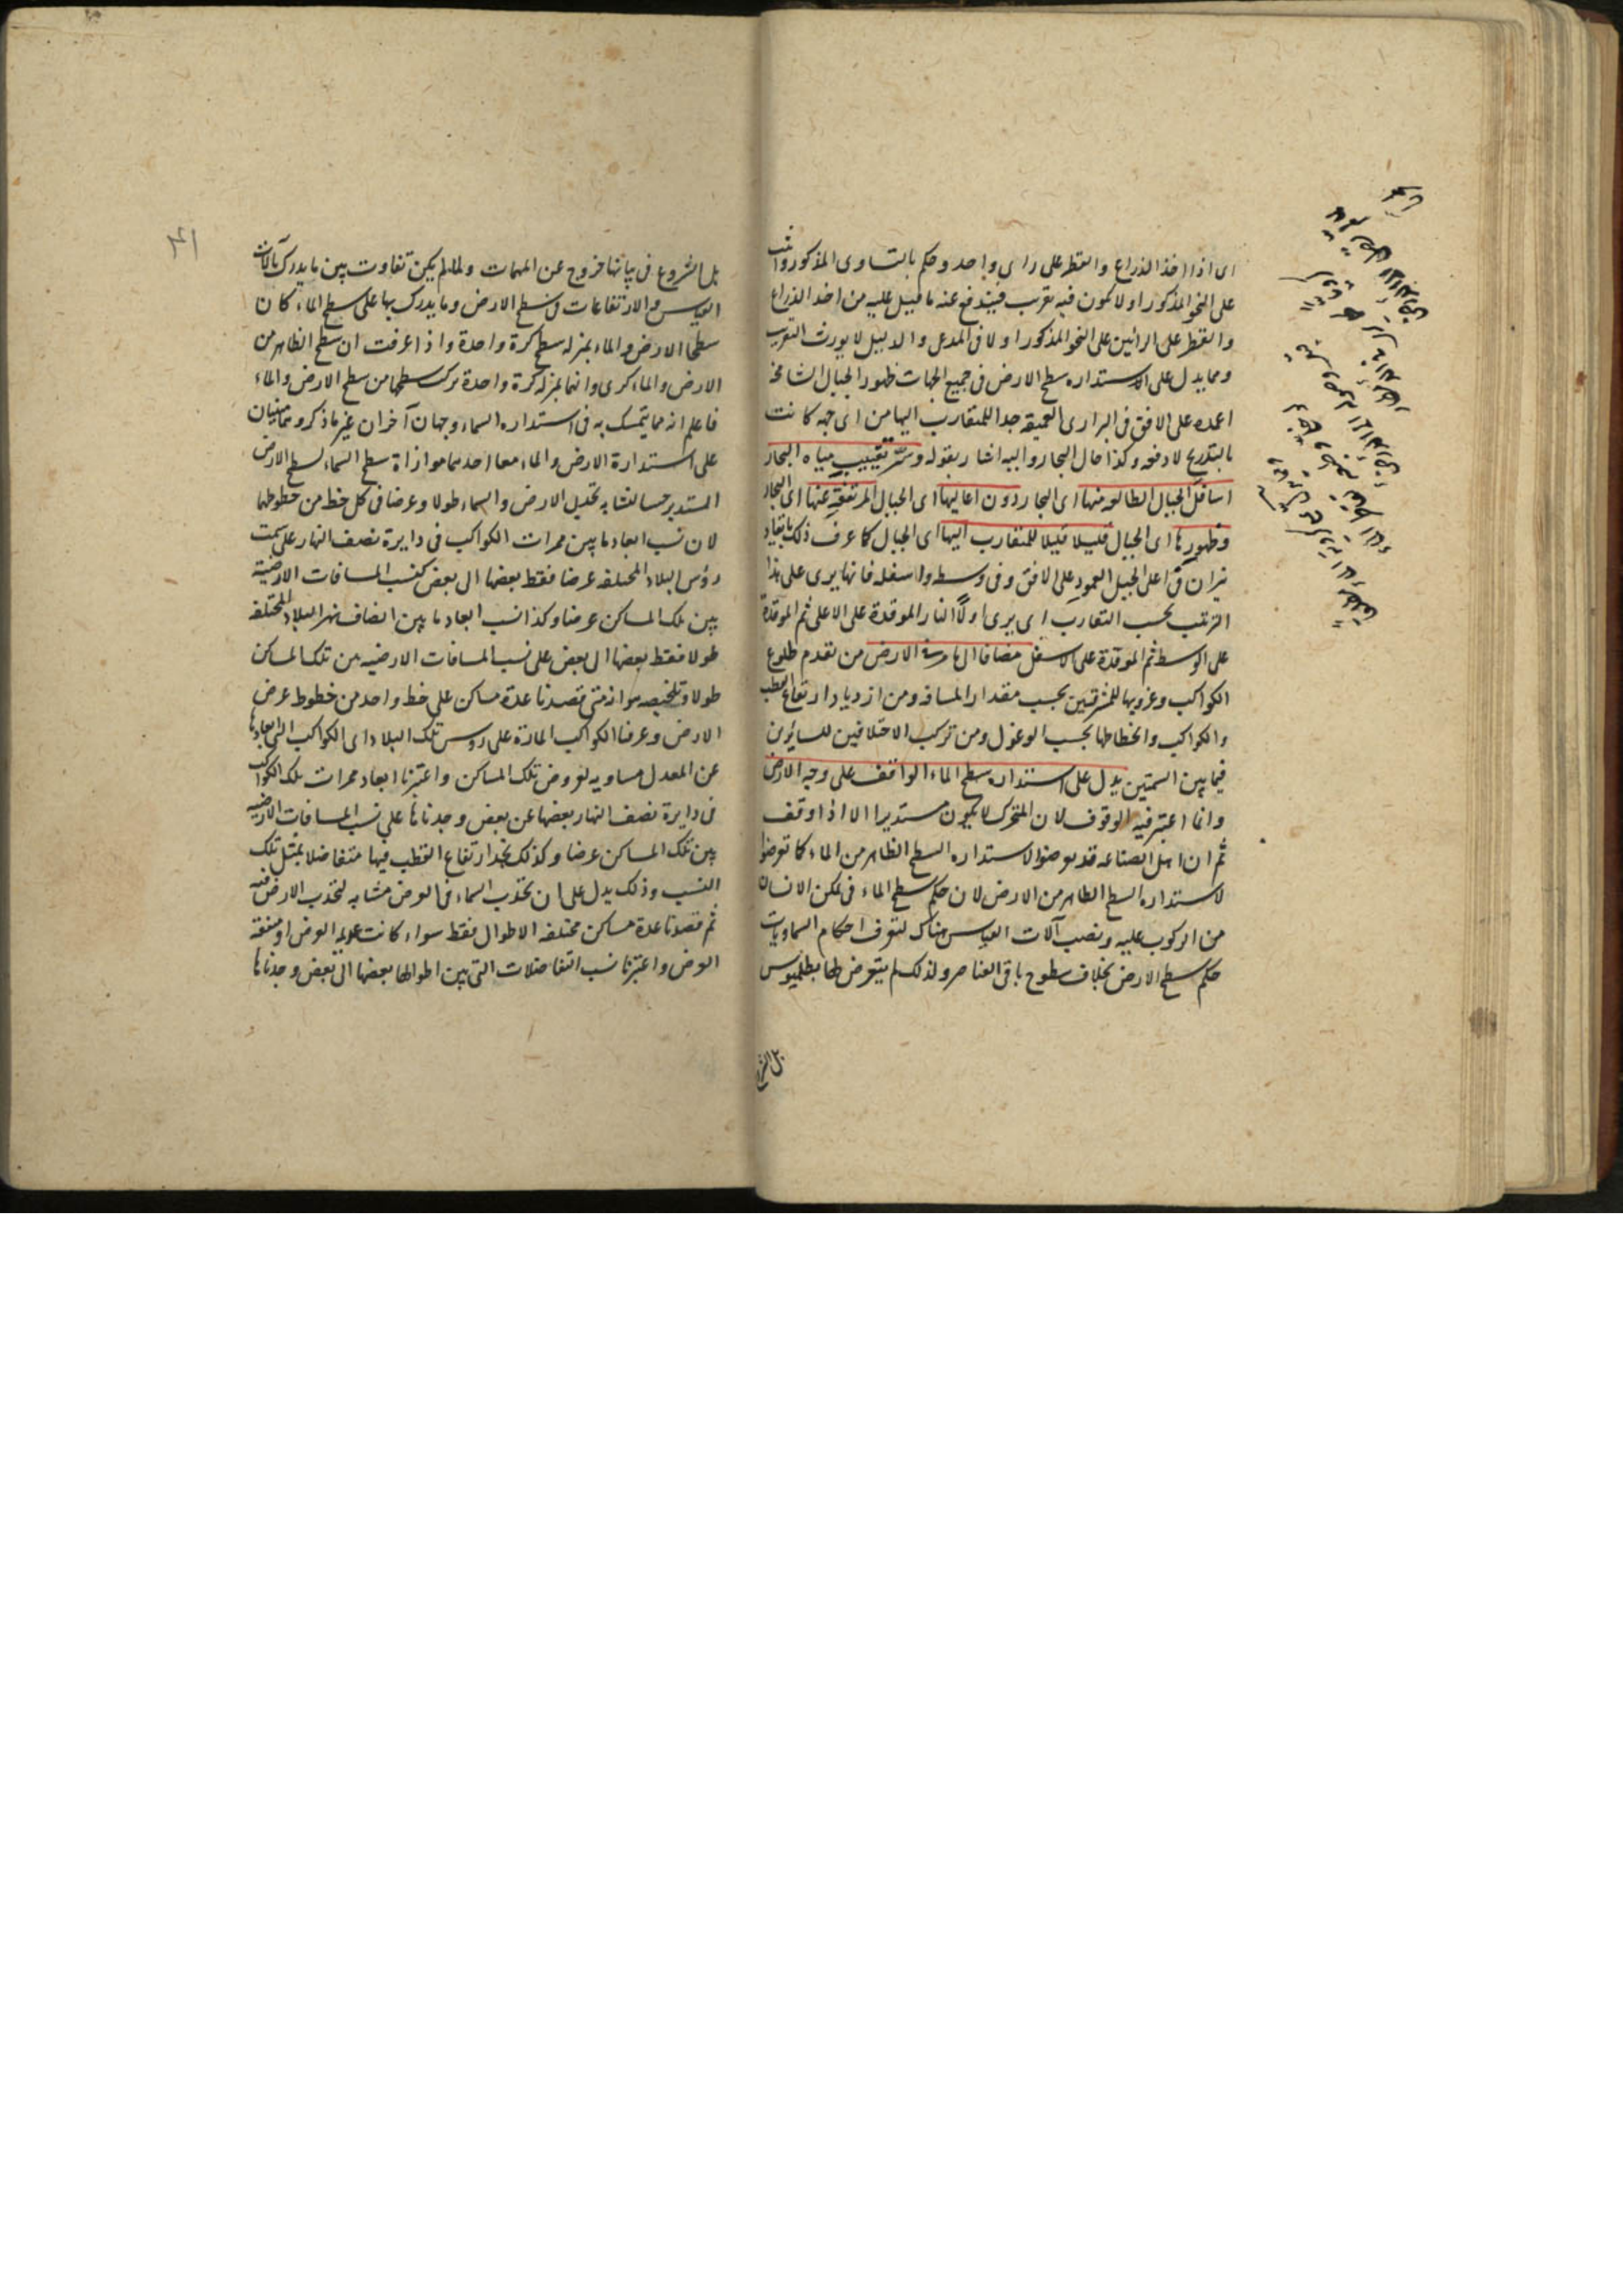 اى اذا اخذ الذراع والقطر على راى واحد وحكم بالتساوى المذكور واثبت
على النحو المذكور اولا كون فيه تقريب فيندفع عنه ما قيل عليه من اخذ الذراع
والقطر على الرائين على النحو المذكور اولا فى المدعى والدليل لا يورث التقريب
ومما يدل على استداره سطح الارض فى جميع الجهات ظهور الجبال الشامخه
اعمده على الافق فى البرارى العميقه جدا للمتقارب اليها من اى جهه كانت
بالتدريج لا دفعه وكذا حال البحار واليه اشار بقوله وستر تقبيب مياه البحار
اسافل الجبال الطالعه منها اى البحار دون اعاليها اى الجبال المرتفعة عنها اى البحار
وظهورها اى الجبال قليلا قليلا للمتقارب اليها اى الجبال كما عرف ذلك بايقاد
نيران فى اعلى الجبل العمود على الافق وفى وسطه واسفله فانها يرى على هذا
الترتيب بحسب التقارب اى يرى اولًا النار الموقدة على الاعلى ثم الموقدة
على الاوسط ثم الموقدة على الاسفل مضافا الى ما مر فى الارض من تقدم طلوع
الكواكب وغروبها للمشرقيين بحسب مقدار المسافه ومن ازدياد ارتفاع القطب
والكواكب وانحطاطها بحسب الوغول ومن تركب الاختلافين للسايرين
فيما بين السمتين يدل على استداره سطح الماء الواقف على وجه الارض
وانما اعتبر فيه الوقوف لان المتحرك لا يكون مستديرا الا اذا وقف
ثم ان اهل الصناعه قد تعرضوا لاستداره السطح الظاهر من الماء كما تعرضوا
لاستداره السطح الظاهر من الارض لان حكم سطح الماء فى تمكن الانسان
من الركوب عليه ونصب آلات القياس هناك لتعرف احكام السماويات
حكم سطح الارض بخلاف سطوح باقى العناصر ولذلك لم يتعرض لها بطلميوس
بل الشروع
٤١
بل الشروع فى بيانها خروج عن المهمات ولما لم يكن تفاوت بين ما يدرك بآلات
القياس والارتفاعات فى سطح الارض وما يدرك بها على سطح الماء كان
سطحا الارض والماء بمنزله سطح كرة واحدة واذا عرفت ان سطح الظاهر من
الارض والماء كرى وانهما بمنزله كرة واحدة تركب سطحها من سطح الارض والماء
فاعلم انه مما يتمسك به فى استداره السماء وجهان آخران غير ما ذكر وهما مبنيان
على استدارة الارض والماء معا احدهما موازاة سطح السماء لسطح الارض
المستدير حسا لتشابه تحديب الارض والسماء طولا وعرضا فى كل خط من خطوطهما
لان نسب ابعاد ما بين ممرات الكواكب فى دايرة نصف النهار على سمت
رؤس البلاد المختلفه عرضا فقط بعضها الى بعض كنسب المسافات الارضية
بين تلك المساكن عرضا وكذا نسب ابعاد ما بين انصاف نهر البلاد المختلفه
طولا فقط بعضها الى بعض على نسب المسافات الارضيه بين تلك المساكن
طولا وتلخيصه هو انه متى قصدنا عدة مساكن على خط واحد من خطوط عرض
الارض وعرفنا الكواكب المارة على رؤس تلك البلاد اى الكواكب التى ابعادها
عن المعدل مساويه لعروض تلك المساكن واعتبرنا ابعاد ممرات تلك الكواكب
فى دايرة نصف النهار بعضها عن بعض وجدناها على نسب المسافات الارضيه
بين تلك المساكن عرضا وكذلك نجد ارتفاع القطب فيها متفاضلا بمثل تلك
النسب وذلك يدل على ان تحدب السماء فى العرض مشابه لتحدب الارض فيه
ثم قصدنا عدة مساكن مختلفه الاطوال فقط سواء كانت عديمه العرض او متفقه
العرض واعتبرنا نسب التفاضلات التى بين اطوالها بعضها الى بعض وجدناها